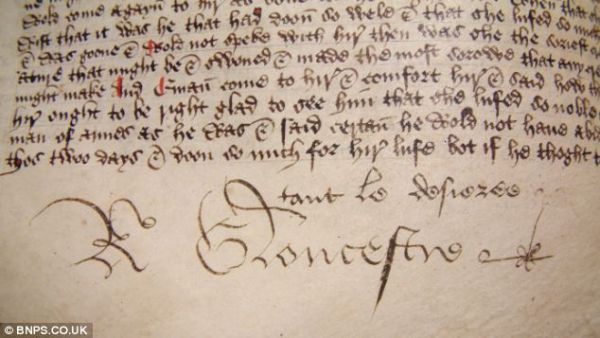 wold come agayn to hir as
wist that it was he that had doon so weld & that she lufed so much
& was goone & wold not speke with hir then was she the soriest
that might be & swoned & made the most sorowe that any
might make And come to hir & comfort hir & said how
hir ought to be right glad to see him that she lufed so noble
man of armes as he was & said certan he wold not have
thos twoo days & doon so much for hir lufe bot if he thoght
tant le desieree
R Gloucestre
© BNPS.CO.UK